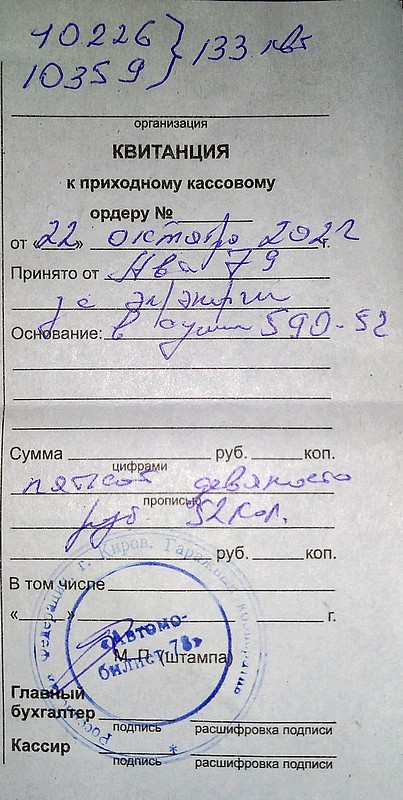 10226 } 133 квт
10359
организация
КВИТАНЦИЯ
к приходному кассовому
ордеру №
от «22» октября 2021 г.
Принято от Ава 79
за эл/энергию
Основание: в сумме 590-52
Сумма руб. коп.
цифрами
пятьсот девяносто
прописью
руб 52 коп.
руб. коп.
В том числе
« » г.
Российская Федерация г. Киров. Гаражный кооператив
«Автомо-
билист 78»
М. П. (штампа)
Главный
бухгалтер
подпись расшифровка подписи
Кассир
подпись расшифровка подписи